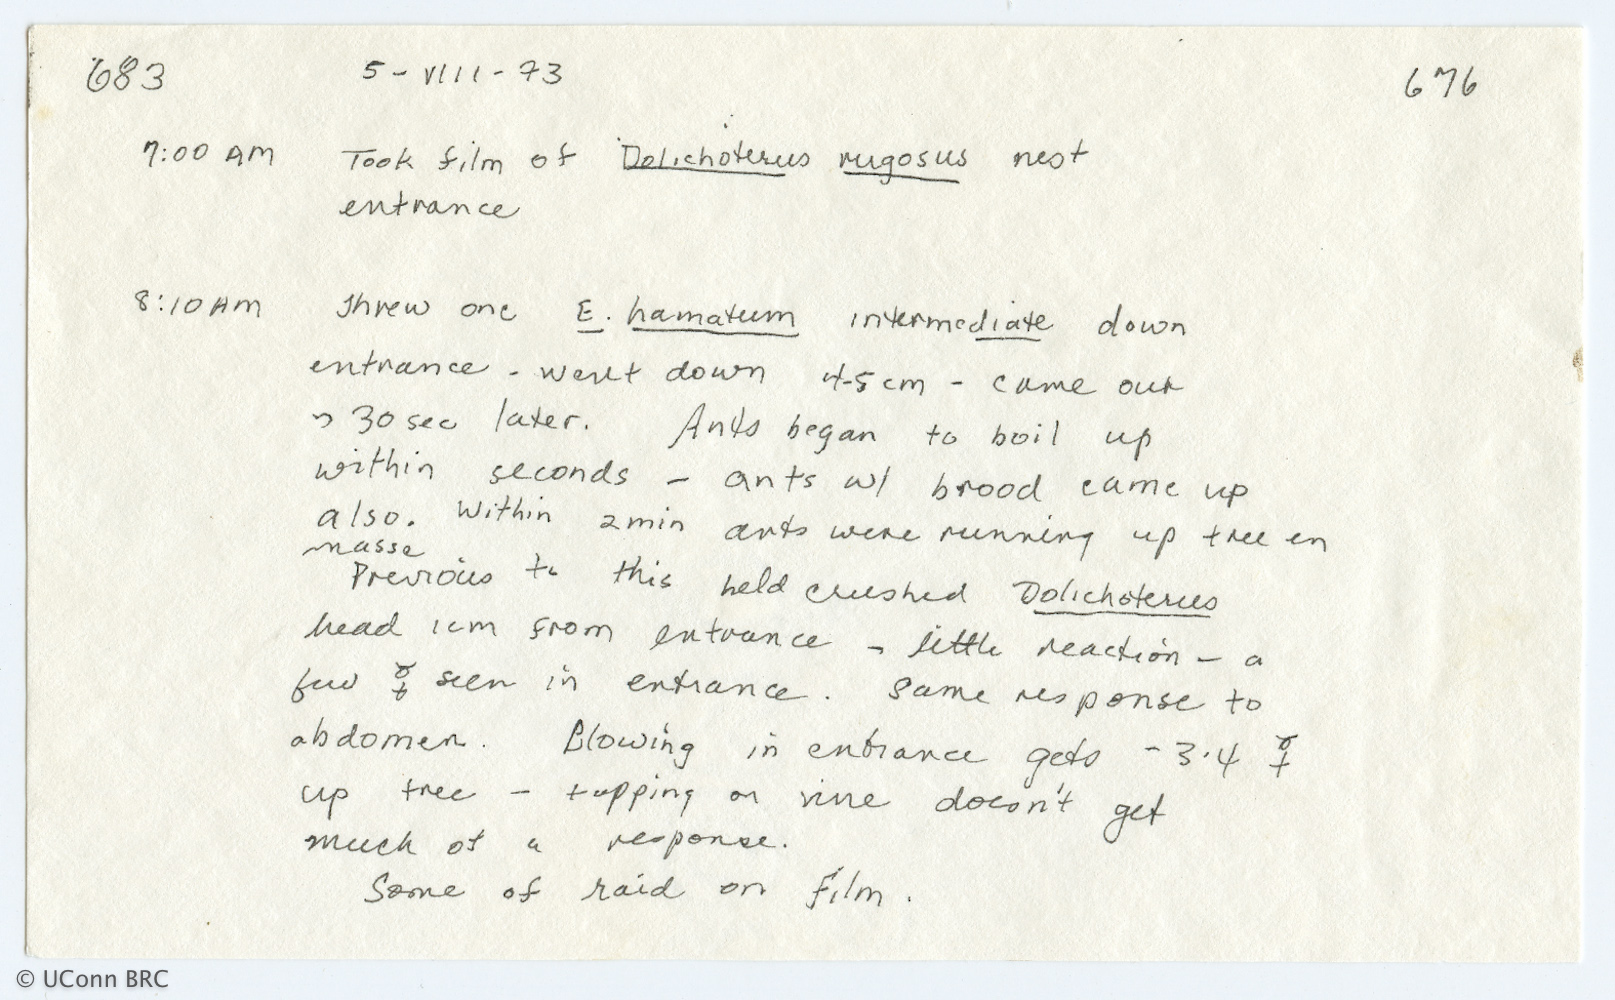 683 5-VIII-73 676
7:00 AM Took film of Dolichoterus rugosus nest
entrance
8:10 AM Threw one E. hamatum intermediate down
entrance - went down 4-5 cm - came out
~ 30 sec later. Ants began to boil up
within seconds - ants w/ brood came up
also. Within 2 min ants were running up tree en
masse
Previous to this held crushed Dolichoterus
head 1cm from entrance - little reaction - a
few ☿ seen in entrance. Same response to
abdomen. Blowing in entrance gets ~3-4 ☿
up tree - tapping on vine doesn't get
much of a response.
Some of raid on film.
© UConn BRC